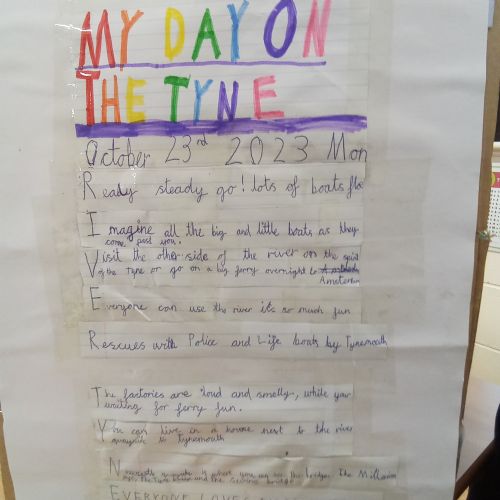 MY DAY ON
THE TYNE
October 23rd 2023 Mon
Ready steady go! lots of boats
Imagine all the big and little boats as they
come past you.
Visit the other side of the river on the
of the Tyne or go on a big ferry overnight to
Amsterdam
Everyone can use the river it's so much fun
Rescues with Police and Life boats by Tynemouth
The factories are loud and smelly, while your
waiting for ferry fun.
You can live in a house next to the river
quayside to Tynemouth
is where you can see the bridges. The Millenium
the Tyne and the
EVERYONE LOVES